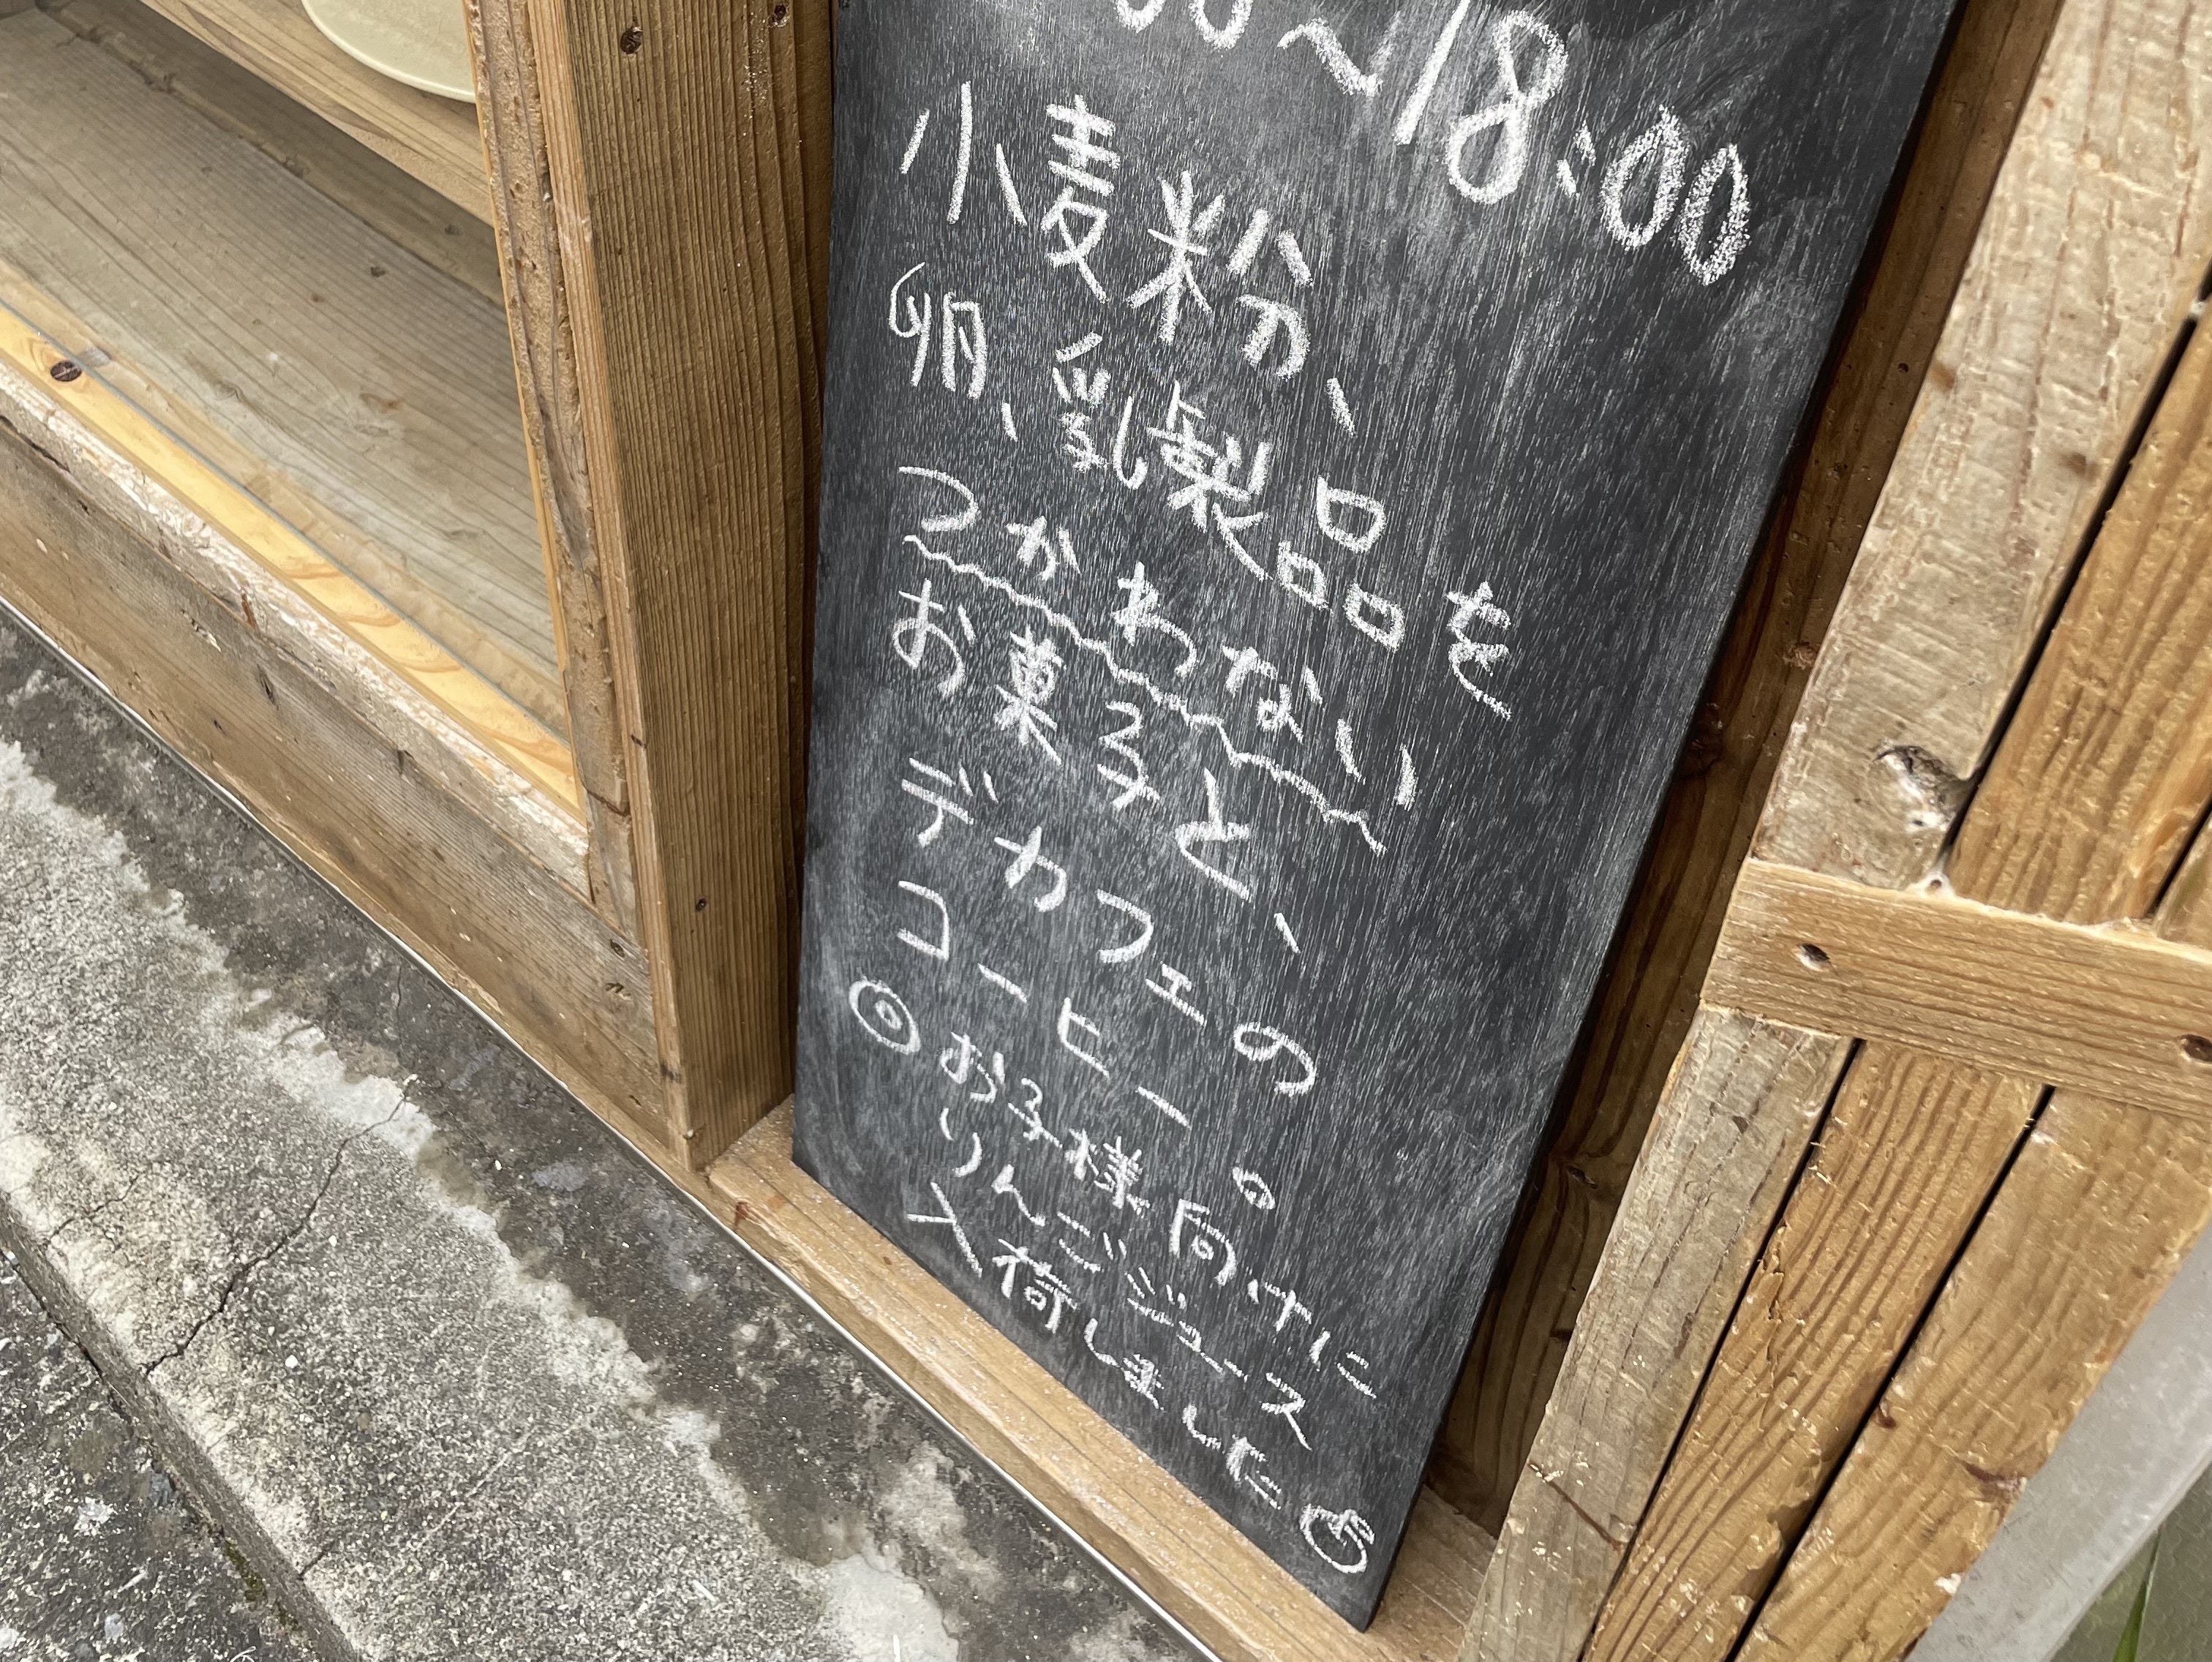 00〜18:00
小麦粉、
卵、乳製品を
つかわない
お菓子と、
デカフェの
コーヒー。
◎お子様向けに
りんごジュース
入荷しました